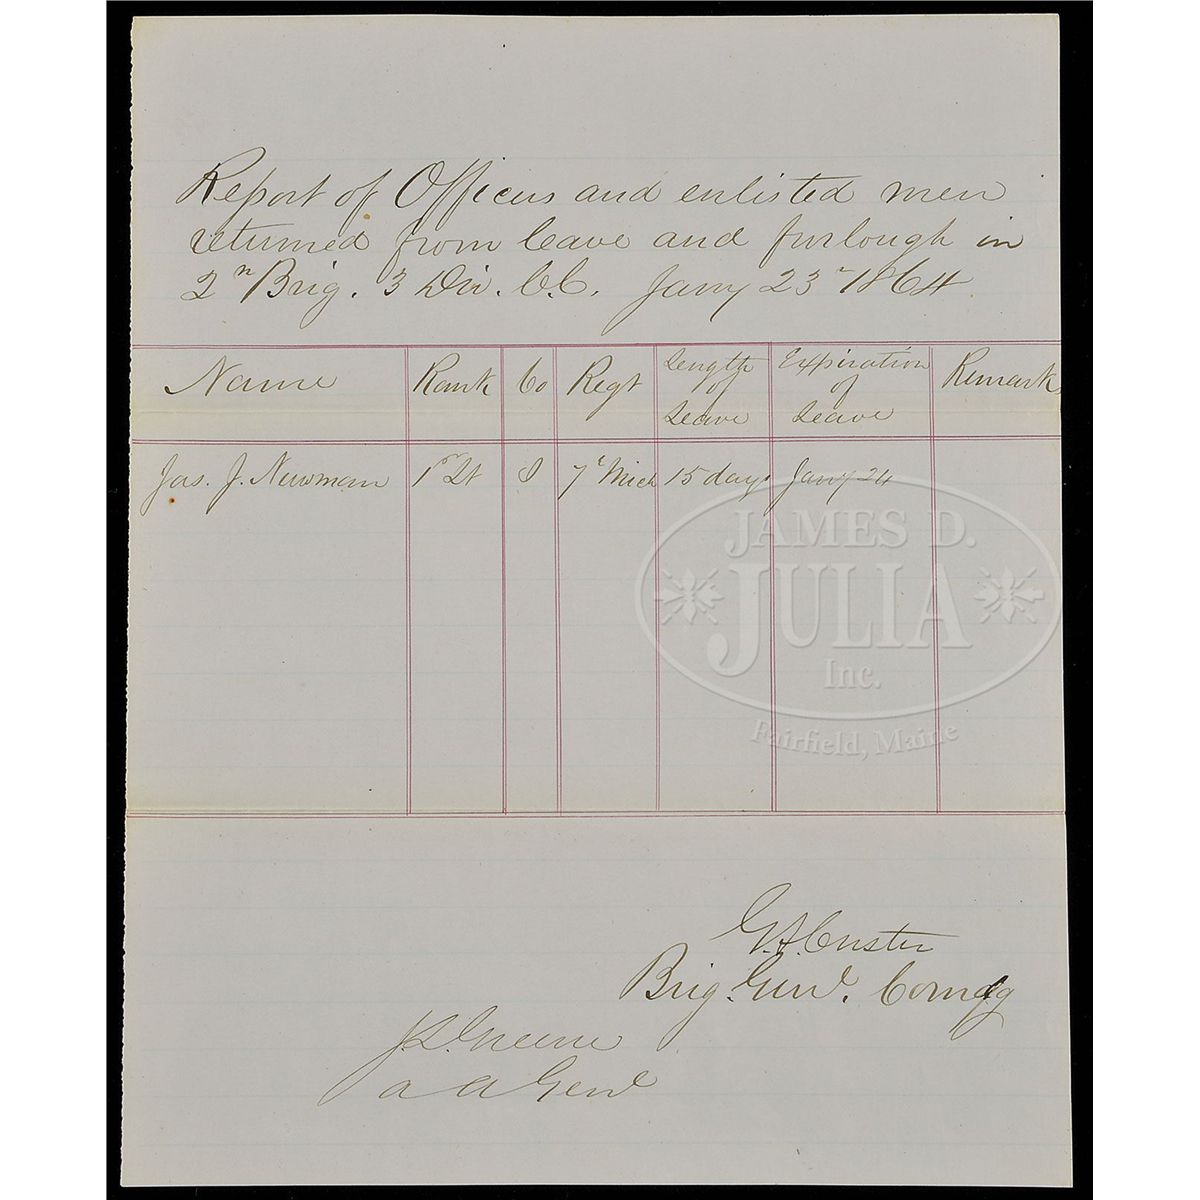 Report of Officers and enlisted men
returned from leave and furlough in
2ⁿ Brig. 3 Div. C.C. Jany 23ʳ 1864
Name Rank Co Regt Length of Leave Expiration of Leave Remarks
Jas. J. Newman 1ˢᵗ Lt 7ᵗ Mich 15 days Jany 24
JAMES D.
JULIA
Inc.
Fairfield, Maine
G.A. Custer
Brig. Genl. Comdg
J.L. Greene
a a Genl